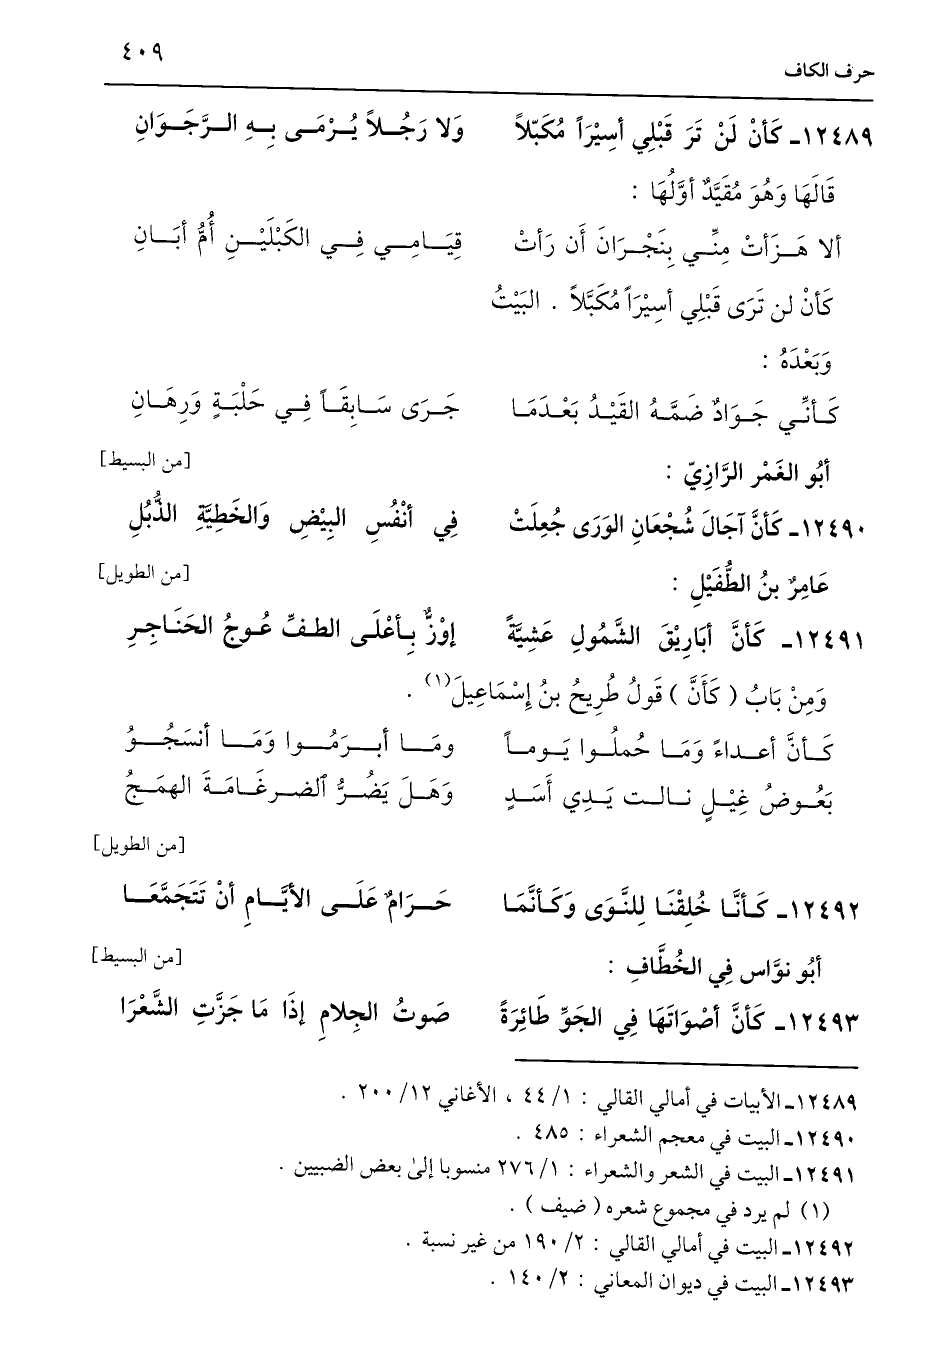 حرف الكاف ٤٠٩
١٢٤٨٩ـ كَأنْ لَنْ تَرَ قَبْلِي أسِيْرَاً مُكَبّلاً وَلا رَجُــلاً يُــرْمَــى بِــهِ الــرَّجَــوَانِ
قَالَهَا وَهُوَ مُقَيَّدٌ أوَّلُهَا :
ألا هَــزَأتْ مِنِّــي بِنَجْــرَانَ أَن رَأتْ قِيَــامِــي فِــي الكَبْلَيْــنِ أُمُّ أبَــانِ
كَأنْ لن تَرَى قَبْلِي أسِيْرَاً مُكَبَّلاً . البَيْتُ
وَبَعْدَهُ :
كَــأنِّــي جَــوَادٌ ضَمَّــهُ القَيْــدُ بَعْــدَمَــا جَــرَى سَــابِقَــاً فِــي حَلْبَــةٍ وَرِهَــانِ
أبُو الغَمْر الرَّازِيّ : [من البسيط]
١٢٤٩٠ـ كَأنَّ آجَالَ شُجْعَانِ الوَرَى جُعِلَتْ فِي أنْفُسِ البِيْضِ وَالخَطِيَّةِ الذُّبُلِ
عَامِرُ بنُ الطُّفَيْلِ : [من الطويل]
١٢٤٩١ـ كَأنَّ أبَارِيْقَ الشَّمُولِ عَشِيَّةً إوْزٌّ بِـأعْلَى الطفِّ عُـوجُ الحَنَـاجِـرِ
وَمِنْ بَابُ ( كَأَنَّ ) قَولُ طُرِيحُ بنُ إسْمَاعِيلَ(١) .
كَــأنَّ أعــداءً وَمَــا حُملُــوا يَــومــاً ومَــا أبــرَمُــوا وَمَــا أنسَجُــوُ
بَعُــوضُ غِيْــلٍ نــالــت يَــدِي أَسَــدٍ وَهَــلَ يَضُــرُّ ٱلضــرغَــامَــةَ الهمَــجُ
[من الطويل]
١٢٤٩٢ـ كَـأنَّـا خُلِقْنَـا لِلنَّـوَى وَكَـأنَّمَـا حَــرَامٌ عَلَــى الأيَّــامِ أنْ تَتَجَمَّعَــا
أبُو نوَّاس فِي الخُطَّافِ : [من البسيط]
١٢٤٩٣ـ كَأنَّ أصْوَاتَهَا فِي الجَوِّ طَائِرَةً صَوتُ الجِلامِ إذَا مَا جَزَّتِ الشَّعْرَا
١٢٤٨٩ـ الأبيات في أمالي القالي : ٤٤/١ ، الأغاني ٢٠٠/١٢ .
١٢٤٩٠ـ البيت في معجم الشعراء : ٤٨٥ .
١٢٤٩١ـ البيت في الشعر والشعراء : ٢٧٦/١ منسوبا إلىٰ بعض الضبيين .
(١) لم يرد في مجموع شعره ( ضيف ) .
١٢٤٩٢ـ البيت في أمالي القالي : ١٩٠/٢ من غير نسبة .
١٢٤٩٣ـ البيت في ديوان المعاني : ١٤٠/٢ .